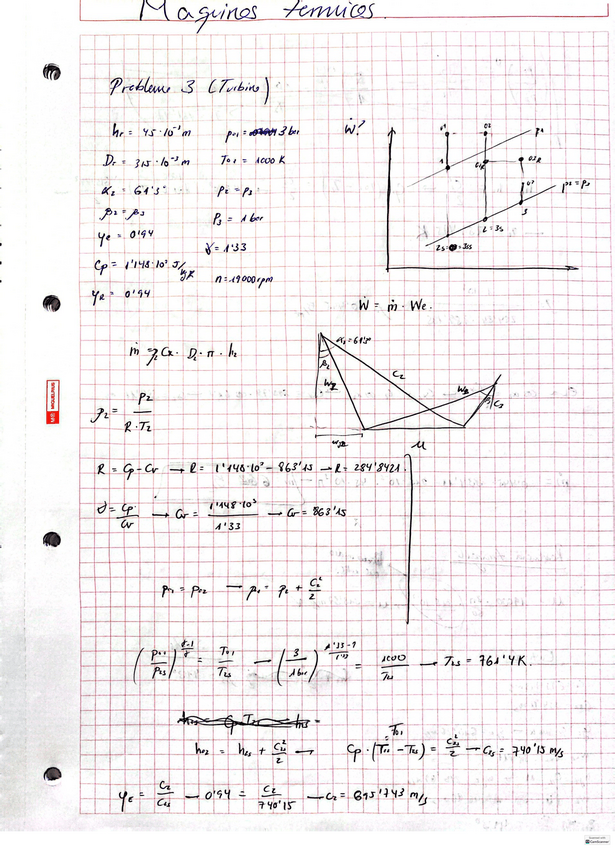 Maquinas termicos.
Problema 3 (Turbina)
hr = 45·10⁻³ m    p01 = 3 bar    Ẇ?
Dr = 315·10⁻³ m    T01 = 1000 K
α2 = 61'5°    p2 = p3
p2 = p3    P3 = 1 bar
φe = 0'94    γ = 1'33
Cp = 1'148·10³ J/kgK    n = 19000 rpm
φR = 0'94
01 02 p1
1 02R 03R
03 p2 = p3
2 = 3s 3
2s = 3ss
Ẇ = ṁ · We.
ṁ = Cx · D2 · π · h2
α2 = 61'5°
β2 W2 C2 W3 β3 C3
ρ2 = P2 / R·T2
u
R = Cp - Cv → R = 1'148·10³ - 863'15 → R = 284'8421
γ = Cp/Cv → Cv = 1'148·10³/1'33 → Cv = 863'15
p01 = p02 → p01 = p2 + C2²/2
(p01/p2s)^((γ-1)/γ) = T01/T2s → (3/1 bar)^((1'33-1)/1'33) = 1000/T2s → T2s = 761'4 K.
h02 = h2s + C2s²/2 → Cp · (T01 - T2s) = C2s²/2 → C2s = 740'15 m/s
T01
φE = C2/C2s → 0'94 = C2/740'15 → C2 = 695'743 m/s
MIQUELRIUS
CamScanner